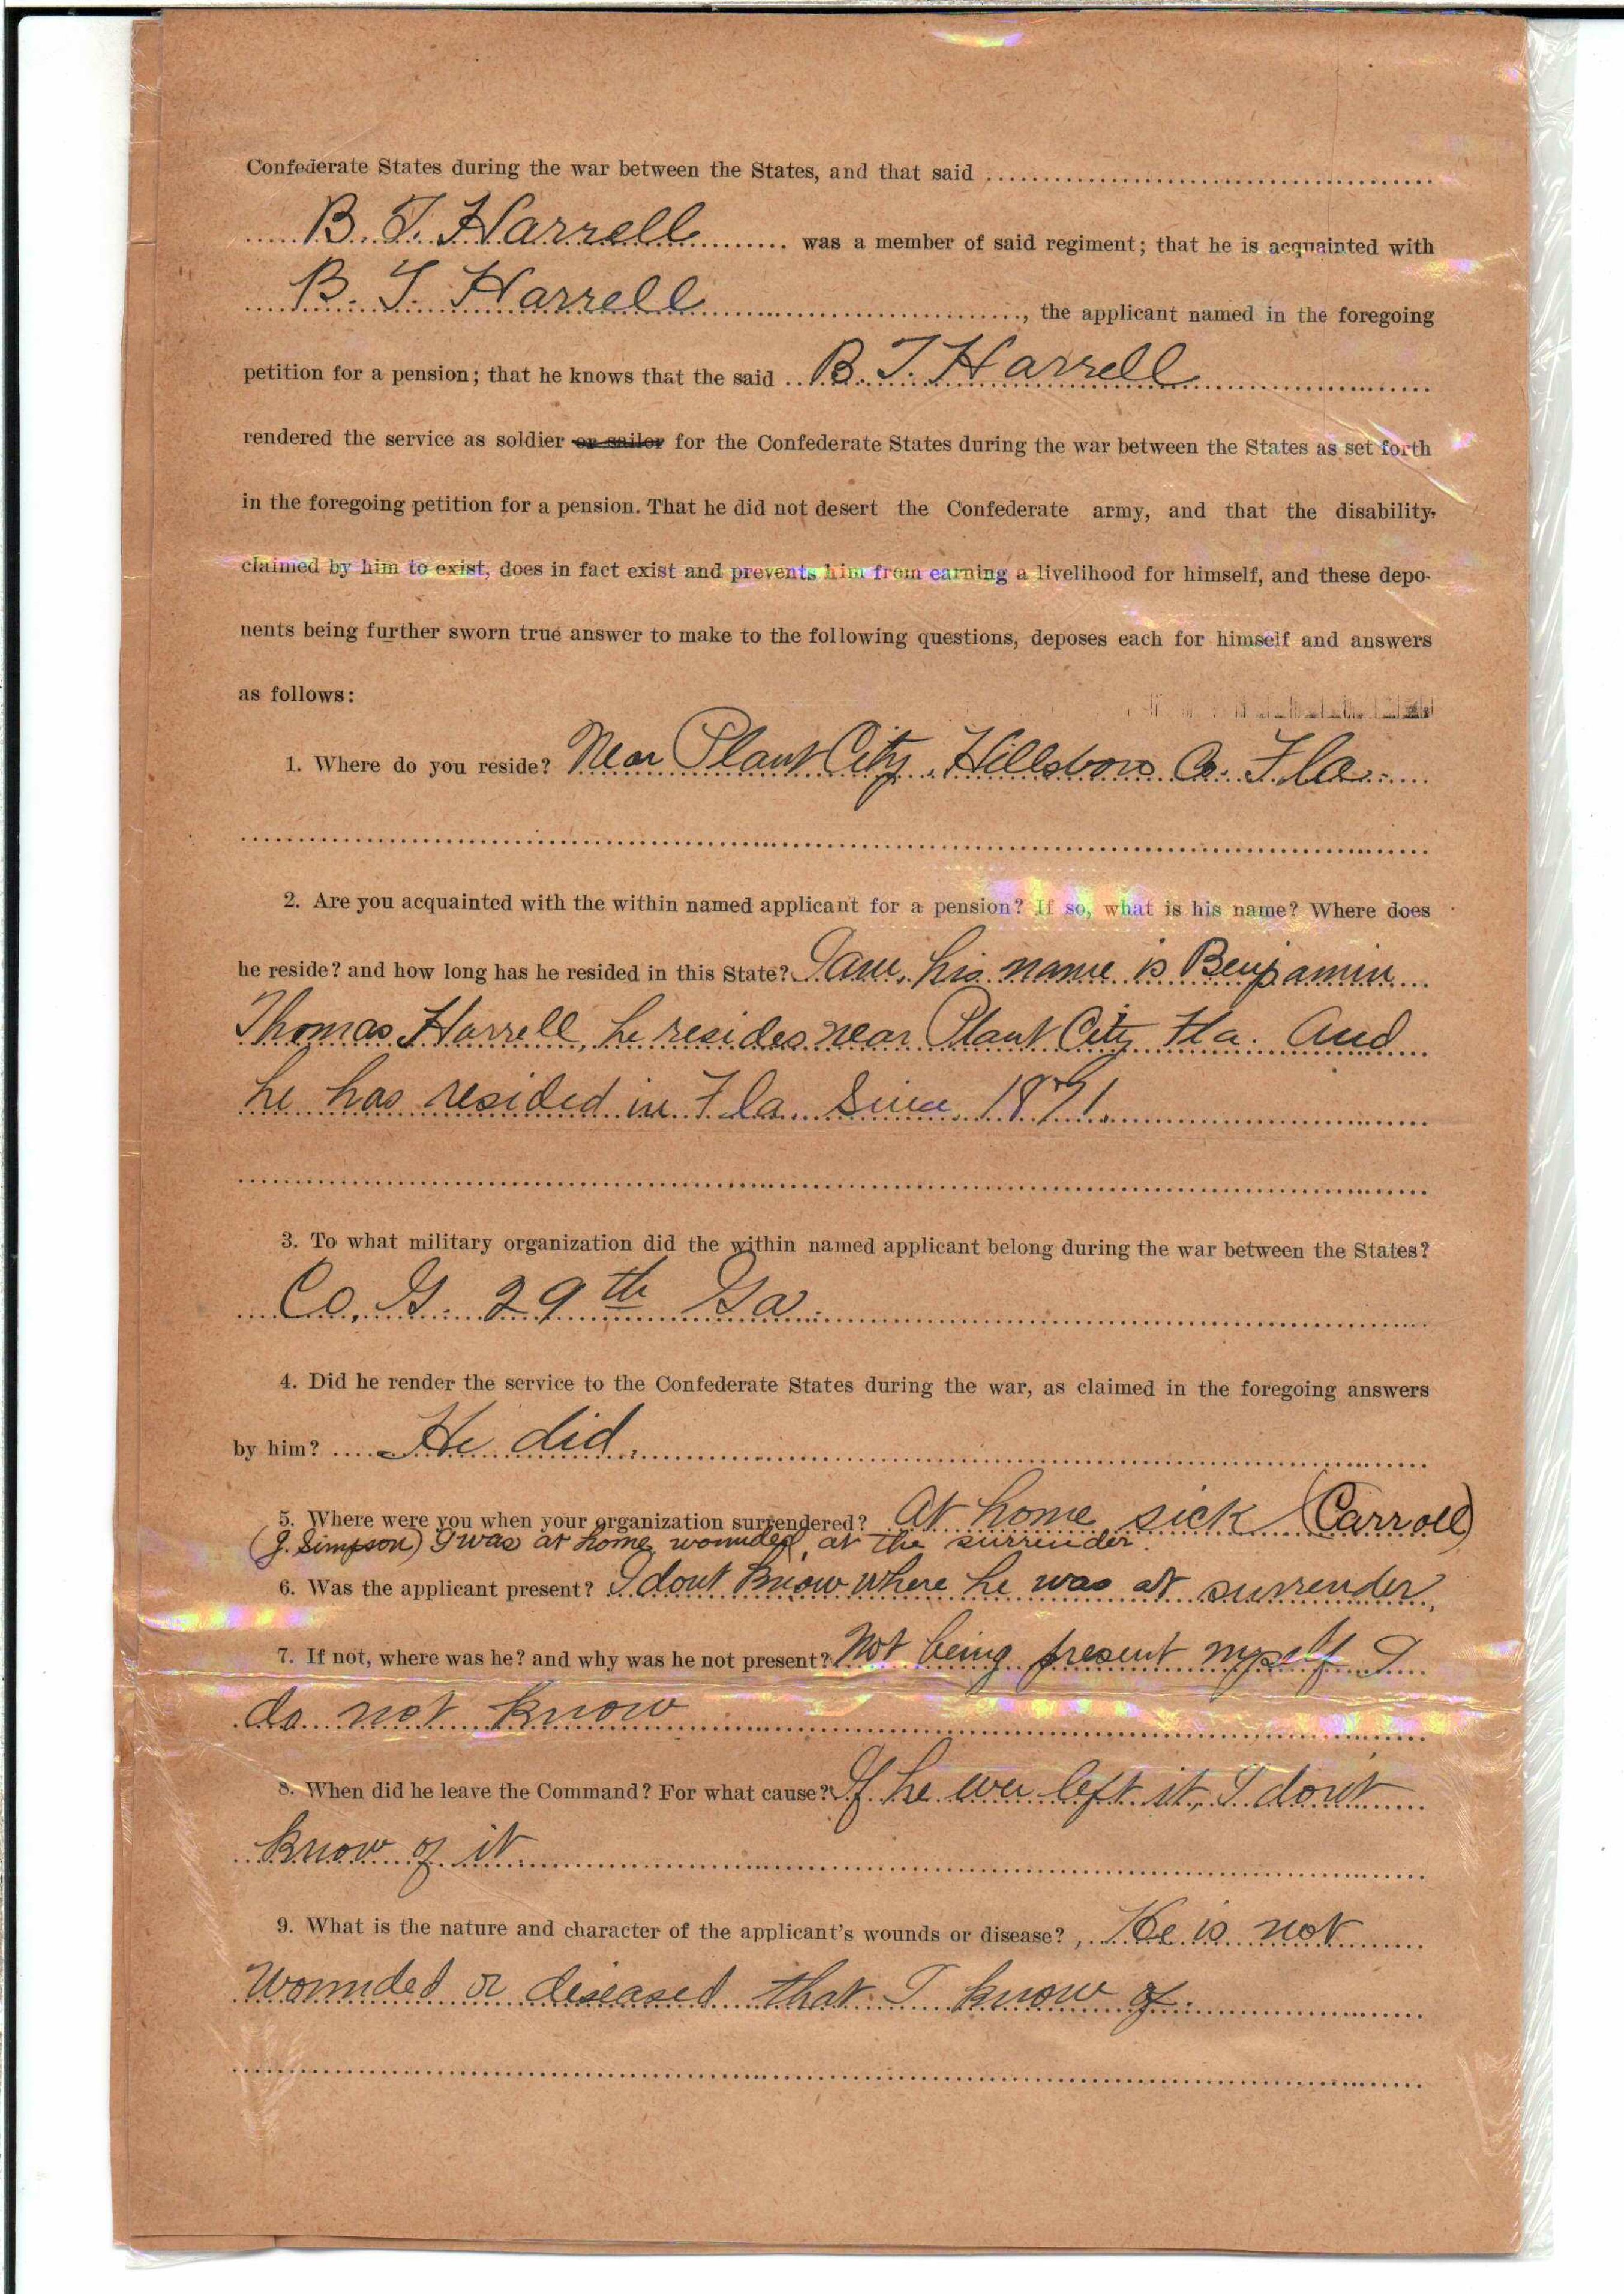 Confederate States during the war between the States, and that said
B. T. Harrell was a member of said regiment; that he is acquainted with
B. T. Harrell, the applicant named in the foregoing
petition for a pension; that he knows that the said B. T. Harrell
rendered the service as soldier or sailor for the Confederate States during the war between the States as set forth
in the foregoing petition for a pension. That he did not desert the Confederate army, and that the disability,
claimed by him to exist, does in fact exist and prevents him from earning a livelihood for himself, and these depo-
nents being further sworn true answer to make to the following questions, deposes each for himself and answers
as follows:
1. Where do you reside? Near Plant City Hillsboro Co. Fla.
2. Are you acquainted with the within named applicant for a pension? If so, what is his name? Where does
he reside? and how long has he resided in this State? I am, his name is Benjamin
Thomas Harrell, he resides near Plant City Fla. And
he has resided in Fla. Since 1871.
3. To what military organization did the within named applicant belong during the war between the States?
Co. G. 29th Ga.
4. Did he render the service to the Confederate States during the war, as claimed in the foregoing answers
by him? He did.
5. Where were you when your organization surrendered? At home sick (Carroll)
(J. Simpson) I was at home, wounded, at the surrender.
6. Was the applicant present? I dont know where he was at surrender,
7. If not, where was he? and why was he not present? Not being present myself I
do not know
8. When did he leave the Command? For what cause? If he ever left it, I dont
know of it
9. What is the nature and character of the applicant's wounds or disease?, He is not
wounded or diseased that I know of.